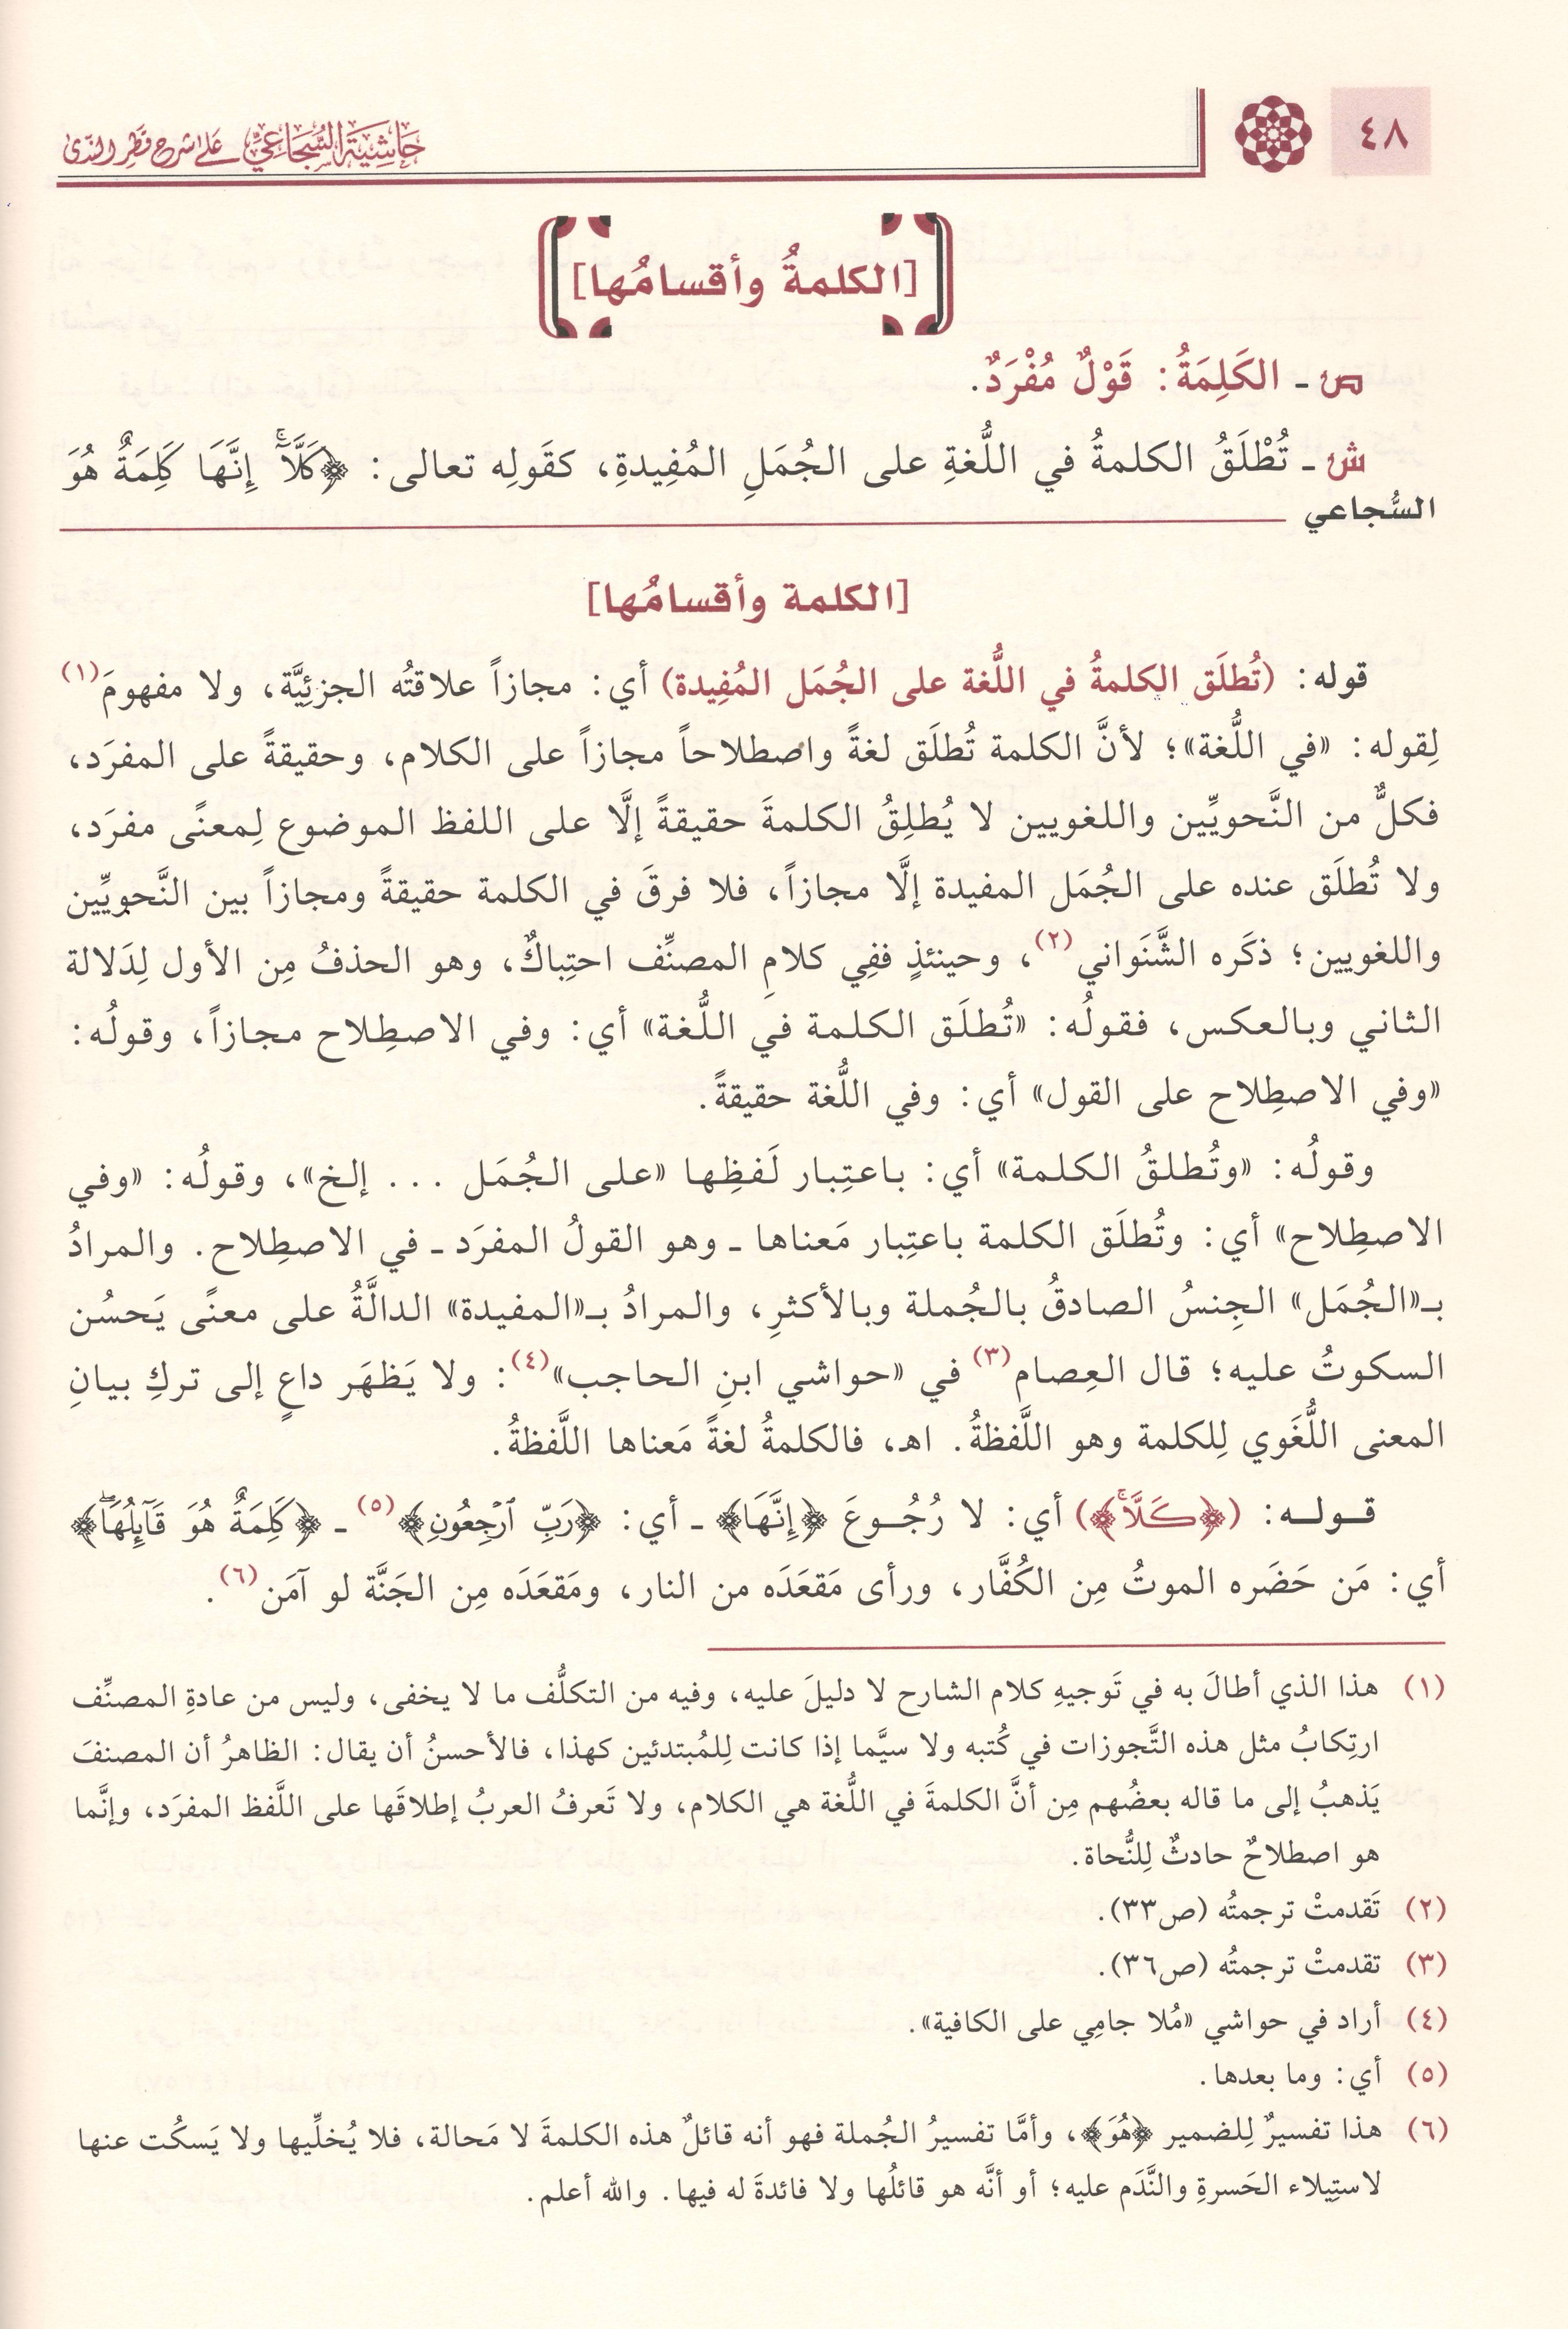 ٤٨
حَاشِيَة السُّجَاعِيِّ عَلى شرح قَطْرِ النَّدى
[الكلمةُ وأقسامُها]
ص ـ الكَلِمَةُ: قَوْلٌ مُفْرَدٌ.
ش ـ تُطْلَقُ الكلمةُ في اللُّغةِ على الجُمَلِ المُفِيدةِ، كقَولِه تعالى: ﴿كَلَّآۚ إِنَّهَا كَلِمَةٌ هُوَ
السُّجاعي
[الكلمة وأقسامُها]
قوله: (تُطلَق الكلمةُ في اللُّغة على الجُمَل المُفِيدة) أي: مجازاً علاقتُه الجزئِيَّة، ولا مفهومَ(١)
لِقوله: «في اللُّغة»؛ لأنَّ الكلمة تُطلَق لغةً واصطلاحاً مجازاً على الكلام، وحقيقةً على المفرَد،
فكلٌّ من النَّحويِّين واللغويين لا يُطلِقُ الكلمةَ حقيقةً إلَّا على اللفظ الموضوع لِمعنًى مفرَد،
ولا تُطلَق عنده على الجُمَل المفيدة إلَّا مجازاً، فلا فرقَ في الكلمة حقيقةً ومجازاً بين النَّحويِّين
واللغويين؛ ذكَره الشَّنَواني(٢)، وحينئذٍ ففِي كلامِ المصنِّف احتِباكٌ، وهو الحذفُ مِن الأول لِدَلالة
الثاني وبالعكس، فقولُه: «تُطلَق الكلمة في اللُّغة» أي: وفي الاصطِلاح مجازاً، وقولُه:
«وفي الاصطِلاح على القول» أي: وفي اللُّغة حقيقةً.
وقولُه: «وتُطلقُ الكلمة» أي: باعتِبار لَفظِها «على الجُمَل ... إلخ»، وقولُه: «وفي
الاصطِلاح» أي: وتُطلَق الكلمة باعتِبار مَعناها ـ وهو القولُ المفرَد ـ في الاصطِلاح. والمرادُ
بـ«الجُمَل» الجِنسُ الصادقُ بالجُملة وبالأكثرِ، والمرادُ بـ«المفيدة» الدالَّةُ على معنًى يَحسُن
السكوتُ عليه؛ قال العِصام(٣) في «حواشي ابنِ الحاجب»(٤): ولا يَظهَر داعٍ إلى تركِ بيانِ
المعنى اللُّغَوي لِلكلمة وهو اللَّفظةُ. اهـ، فالكلمةُ لغةً مَعناها اللَّفظةُ.
قـولـه: (﴿كَلَّآۚ﴾) أي: لا رُجُـوعَ ﴿إِنَّهَا﴾ ـ أي: ﴿رَبِّ ٱرۡجِعُونِ﴾(٥) ـ ﴿كَلِمَةٌ هُوَ قَآئِلُهَاۖ﴾
أي: مَن حَضَره الموتُ مِن الكُفَّار، ورأى مَقعَدَه من النار، ومَقعَدَه مِن الجَنَّة لو آمَن(٦).
(١) هذا الذي أطالَ به في تَوجيهِ كلام الشارح لا دليلَ عليه، وفيه من التكلُّف ما لا يخفى، وليس من عادةِ المصنِّف
ارتِكابُ مثل هذه التَّجوزات في كُتبه ولا سيَّما إذا كانت لِلمُبتدئين كهذا، فالأحسنُ أن يقال: الظاهرُ أن المصنفَ
يَذهبُ إلى ما قاله بعضُهم مِن أنَّ الكلمةَ في اللُّغة هي الكلام، ولا تَعرفُ العربُ إطلاقَها على اللَّفظ المفرَد، وإنَّما
هو اصطلاحٌ حادثٌ لِلنُّحاة.
(٢) تَقدمتْ ترجمتُه (ص٣٣).
(٣) تقدمتْ ترجمتُه (ص٣٦).
(٤) أراد في حواشي «مُلا جامِي على الكافية».
(٥) أي: وما بعدها.
(٦) هذا تفسيرٌ لِلضمير ﴿هُوَ﴾، وأمَّا تفسيرُ الجُملة فهو أنه قائلٌ هذه الكلمةَ لا مَحالة، فلا يُخلِّيها ولا يَسكُت عنها
لاستِيلاء الحَسرةِ والنَّدَم عليه؛ أو أنَّه هو قائلُها ولا فائدةَ له فيها. والله أعلم.